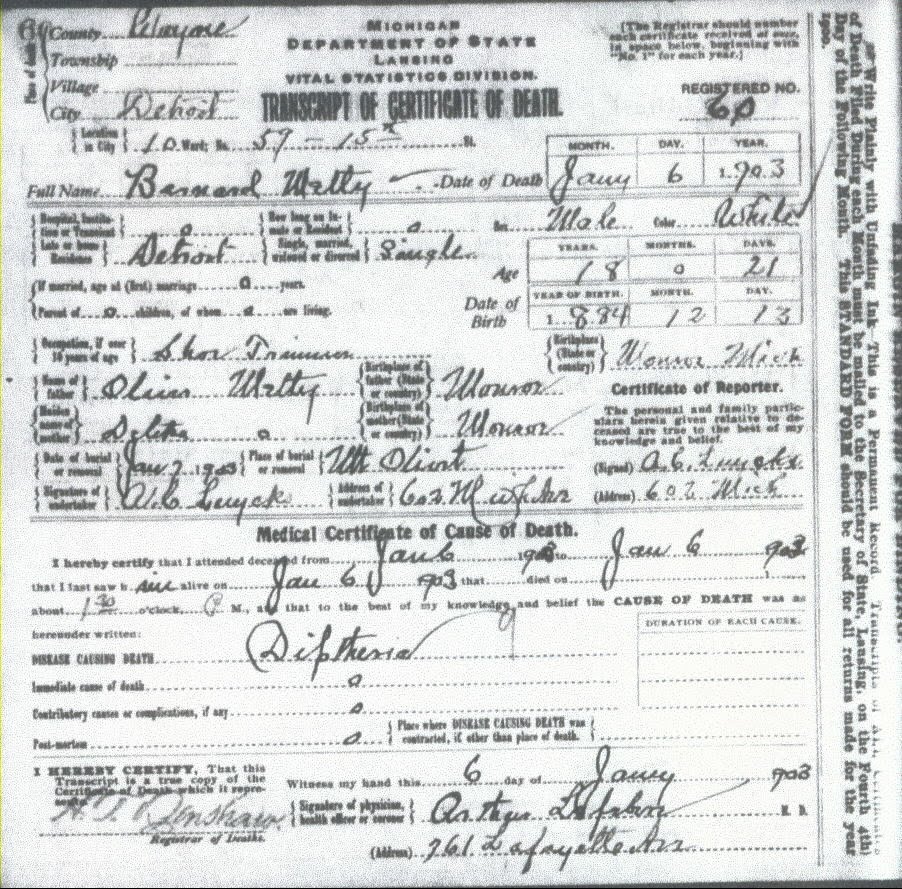 MICHIGAN
DEPARTMENT OF STATE
LANSING
VITAL STATISTICS DIVISION.
TRANSCRIPT OF CERTIFICATE OF DEATH.
[The Registrar should number each certificate received of once, in space below, beginning with "No. 1" for each year.]
REGISTERED NO.
60
Place of death
County Wayne
Township
Village
City Detroit
Location in City 10 Ward; No. 59 - 15th St.
Full Name Barnard Watty Date of Death
MONTH. DAY. YEAR.
Jany 6 1903
Hospital, Institution or Transient 0 How long an Inmate or Resident 0 Sex Male Color White
Late or home Residence Detroit Single, married, widowed or divorced Single
Age YEARS. MONTHS. DAYS.
18 0 21
If married, age at (first) marriage 0 years.
Parent of 0 children, of whom 0 are living.
Date of Birth YEAR OF BIRTH. MONTH. DAY.
1884 12 13
Occupation, if over 10 years of age Shoe Trimmer
Birthplace (State or country) Monroe Mich
Name of father Oliver Watty Birthplace of father (State or country) Monroe
Maiden name of mother Birthplace of mother (State or country) Monroe
Date of burial or removal Jan 7 1903 Place of burial or removal Mt Olivet
Signature of undertaker A.C. Luycks Address of undertaker 602 Mich
Certificate of Reporter.
The personal and family particulars herein given relative to deceased are true to the best of my knowledge and belief.
(Signed) A.C. Luycks
(Address) 602 Mich
Medical Certificate of Cause of Death.
I hereby certify that I attended deceased from Jan 6 1903 to Jan 6 1903
that I last saw h im alive on Jan 6 1903 that died on
about 1 30 o'clock, P M., and that to the best of my knowledge and belief the CAUSE OF DEATH was as
hereunder written:
DURATION OF EACH CAUSE.
DISEASE CAUSING DEATH Diptheria
Immediate cause of death 0
Contributory causes or complications, if any 0
Post-mortem 0 Place where DISEASE CAUSING DEATH was contracted, if other than place of death.
I HEREBY CERTIFY, That this Transcript is a true copy of the Certificate of Death which it represents
Registrar of Deaths.
Witness my hand this 6 day of Jany 1903
Signature of physician, health officer or coroner Arthur M. D.
(Address) 761 Lafayette Ave
Write Plainly with Unfading Ink. This is a Permanent Record. Transcripts of All Certificates
of Death Filed During each Month must be mailed to the Secretary of State, Lansing, on the Fourth 4th)
Day of the Following Month. This STANDARD FORM should be used for all returns made for the year
1900.